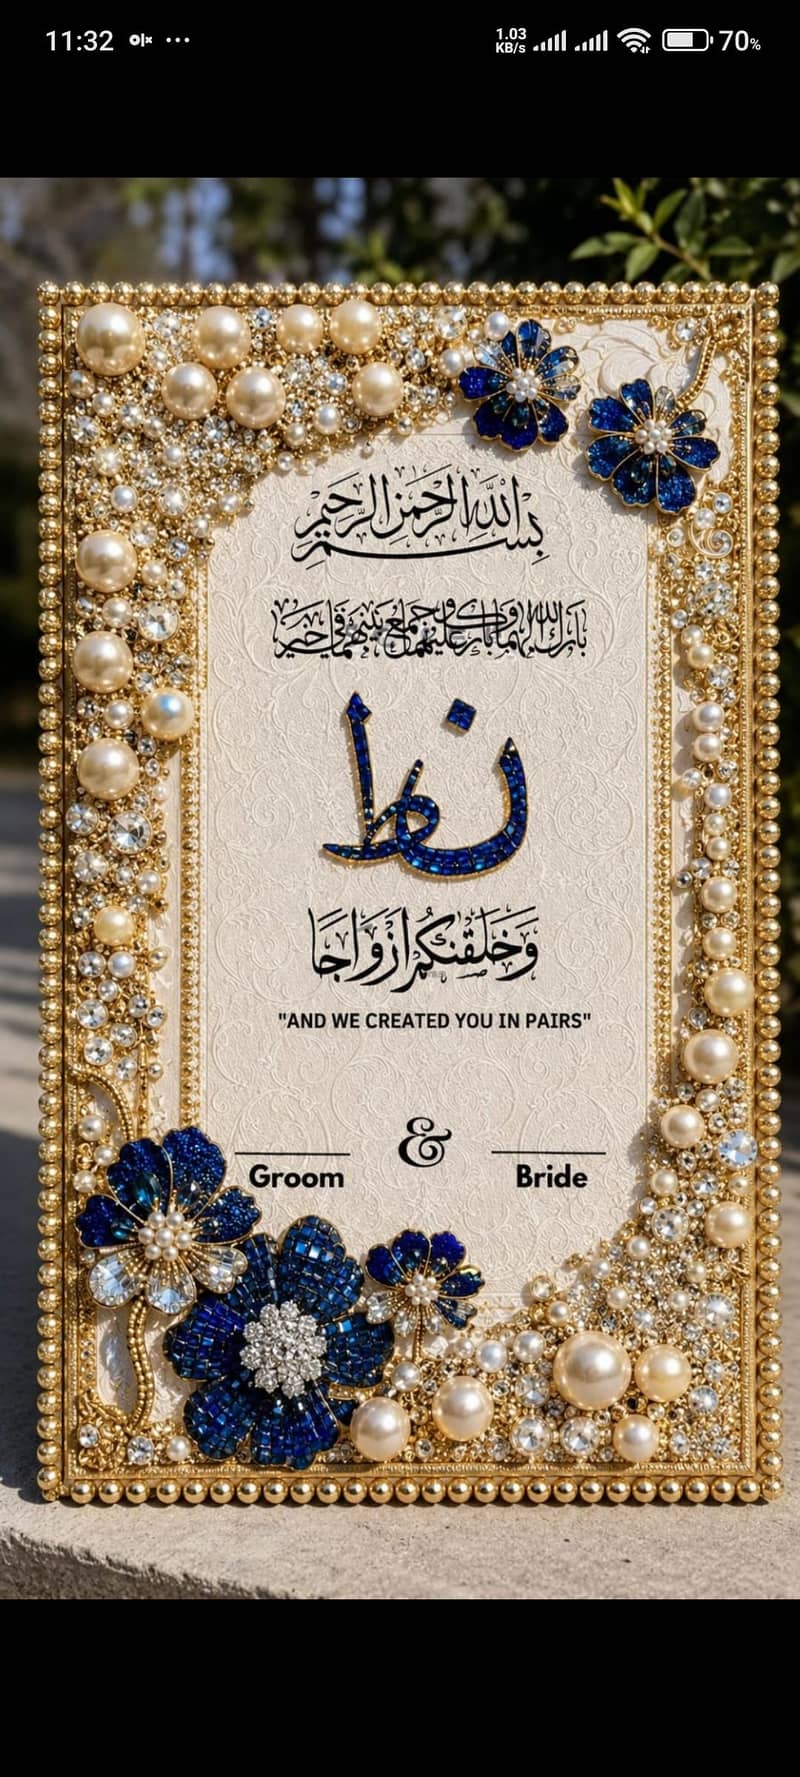 11:32
1.03 KB/s
70%
بسم الله الرحمن الرحيم
بارك الله لهما وبارك عليهما وجمع بينهما في خير
وَخَلَقْنٰكُمْ اَزْوَاجًا
"AND WE CREATED YOU IN PAIRS"
&
Groom Bride